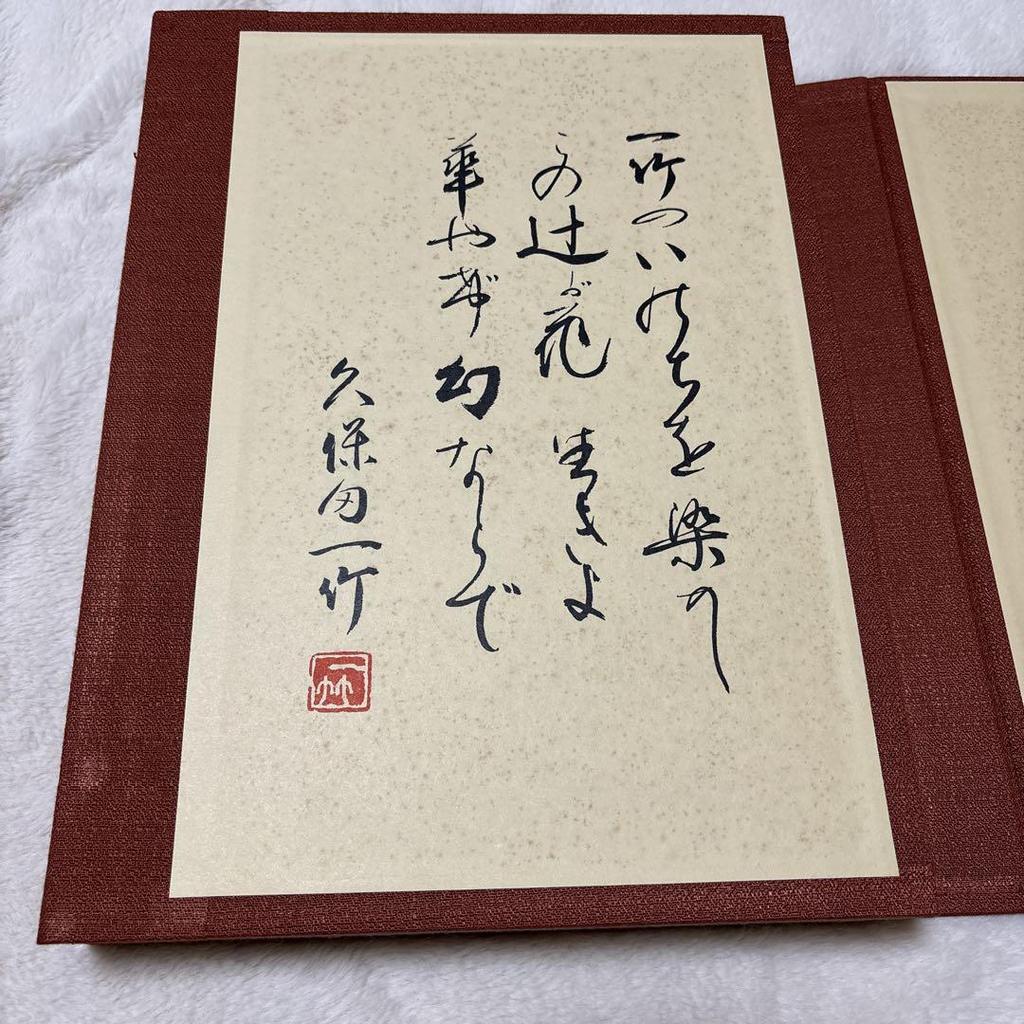 一竹のいのちを染めし
この辻が花 生きよ
華やぎ幻ならで
久保田一竹
一竹